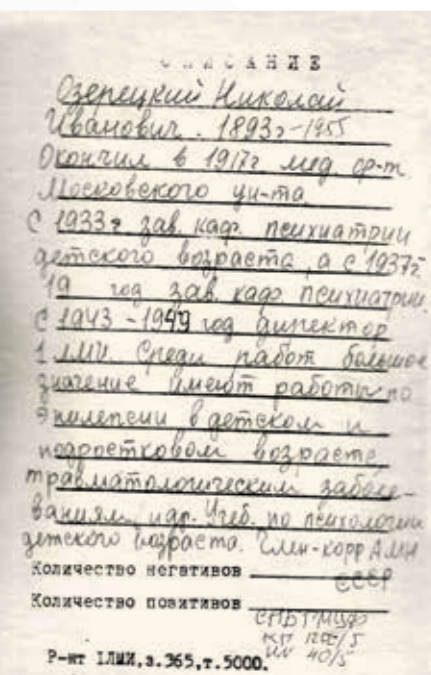 ОПИСАНИЕ
Озерецкий Николай
Иванович. 1893г-1955
Окончил в 1917г мед ф-т
Московского ун-та.
С 1933г зав. каф. психиатрии
детского возраста, а с 1937г
19 год зав. каф психиатрии.
С 1943-1949 год директор
1 ЛМИ. Среди работ большое
значение имеют работы по
эпилепсии в детском и
подростковом возрасте,
травматологическим заболе-
ваниям, и др. Учеб. по психологии
детского возраста. Член-корр АМН
СССР
Количество негативов
Количество позитивов
КП
40/5
Р-нт 1ЛМИ,з.365,т.5000.